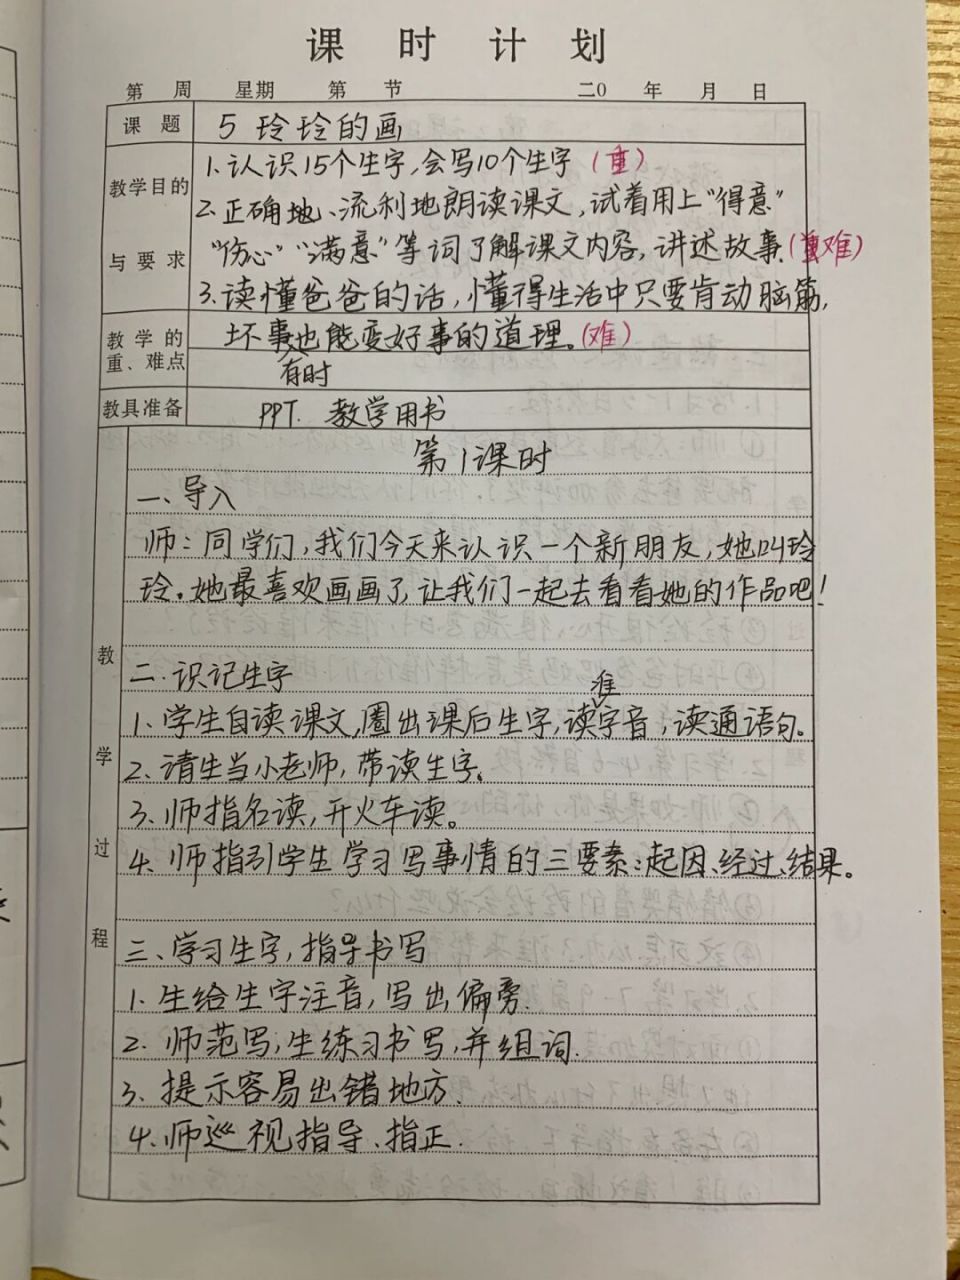 课 时 计 划
第 周 星期 第 节 二0 年 月 日
课 题 5 玲玲的画
教学目的与要求
1.认识15个生字,会写10个生字(重)
2.正确地、流利地朗读课文,试着用上"得意"
"伤心""满意"等词了解课文内容,讲述故事.(重难)
3.读懂爸爸的话,懂得生活中只要肯动脑筋,
教学的重、难点
坏事也能变好事的道理。(难)
有时
教具准备 PPT. 教学用书
教学过程
第1课时
一、导入
师:同学们,我们今天来认识一个新朋友,她叫玲
玲,她最喜欢画画了,让我们一起去看看她的作品吧!
二.识记生字
准
1.学生自读课文,圈出课后生字,读字音,读通语句。
2.请生当小老师,带读生字。
3.师指名读,开火车读。
4.师指引学生学习写事情的三要素:起因、经过、结果。
三、学习生字,指导书写
1.生给生字注音,写出偏旁.
2.师范写,生练习书写,并组词.
3.提示容易出错地方.
4.师巡视指导、指正.